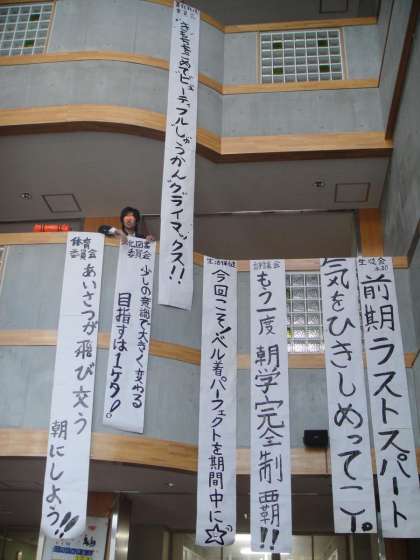 生徒会
前期ラストスパート
気をひきしめってこー。
評議会
もう一度朝学完全制覇!!
生活保健
今回こそ!ベル着パーフェクトを期間中に☆
きもちをこめてビューティフルしゅうかんクライマックス!!
図書
委員会
少しの意識で大きく変わる
目指すは1ケタ!
体育
委員会
あいさつが飛び交う
朝にしよう!!